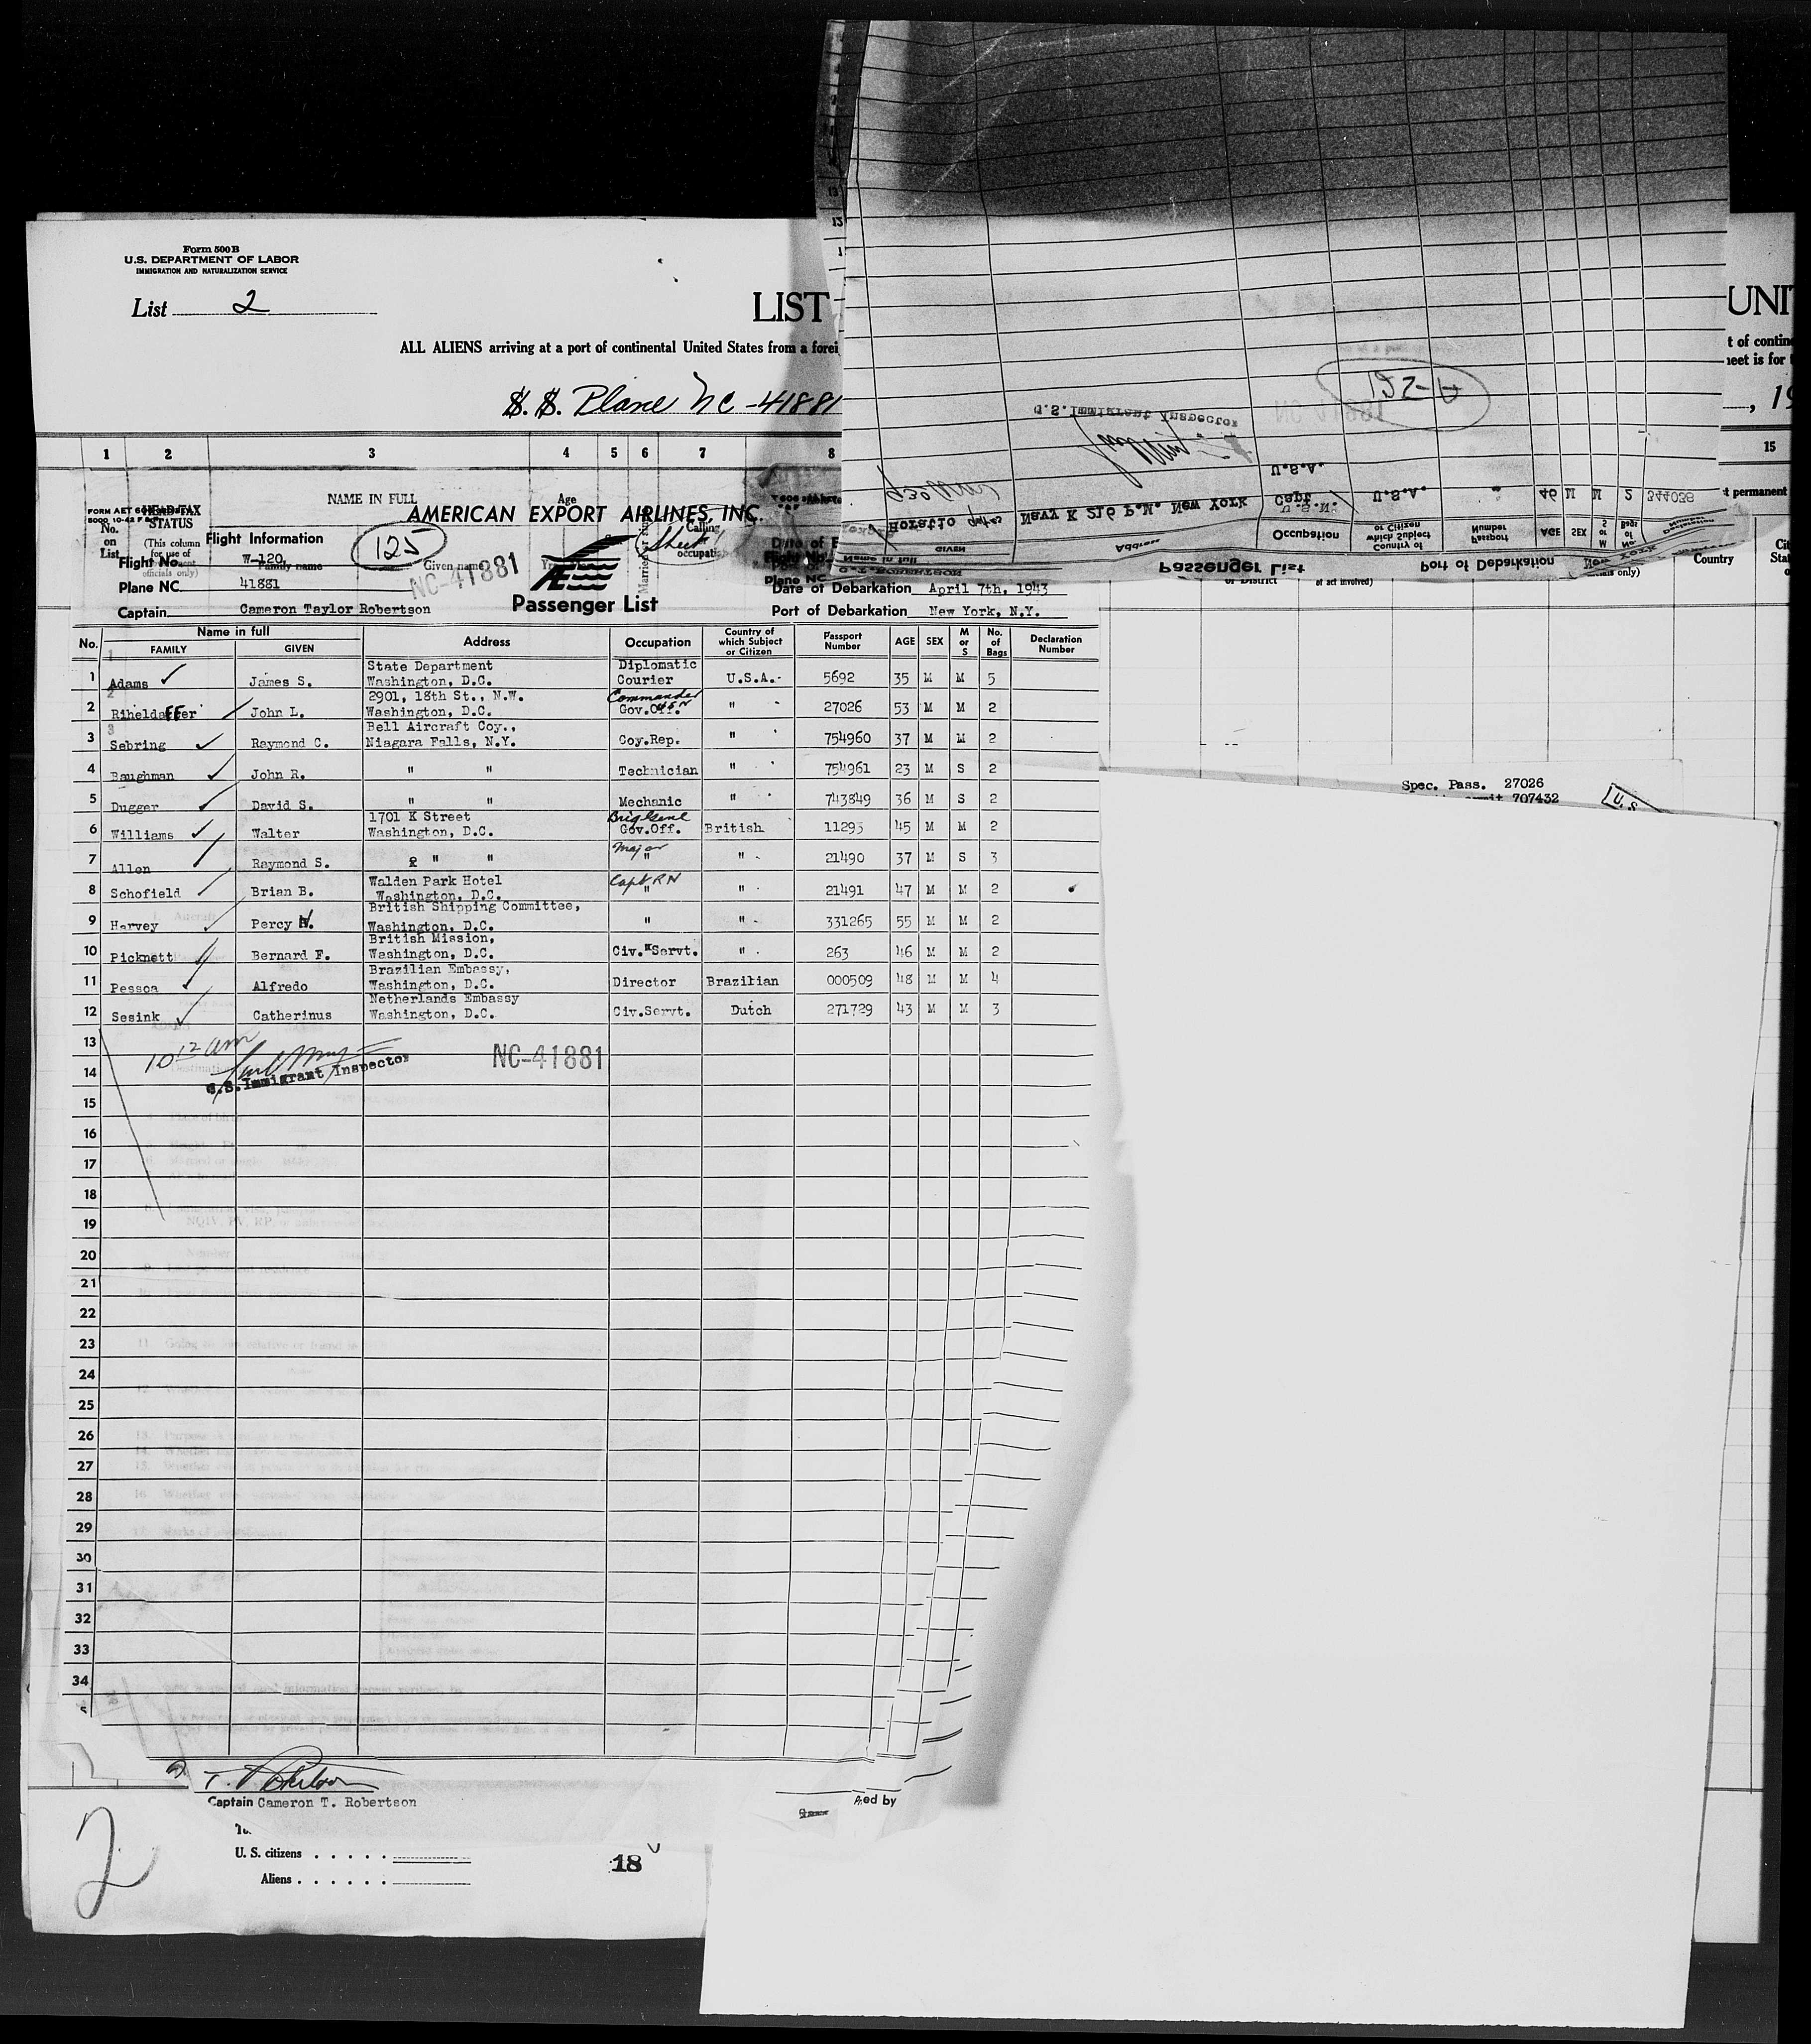 Form 500B
U.S. DEPARTMENT OF LABOR
IMMIGRATION AND NATURALIZATION SERVICE
List 2
LIST
UNI
ALL ALIENS arriving at a port of continental United States from a forei
t of contin
eet is for
S. S. Plane NC-41881
, 19
1 2 3 4 5 6 7 8 15
HEAD-TAX STATUS
(This column for use of officials only)
No. on List
NAME IN FULL
Family name
Given name
Age
Calling or occupati
t permanent
Country
FORM AET
5000 10-42
AMERICAN EXPORT AIRLINES, INC.
Flight Information
125
Sheet
Flight No. W-120
NC-41881
Plane NC 41881
Captain Cameron Taylor Robertson
Passenger List
Date of Debarkation April 7th, 1943
Port of Debarkation New York, N.Y.
No. Name in full FAMILY GIVEN Address Occupation Country of which Subject or Citizen Passport Number AGE SEX M or S No. of Bags Declaration Number
1 Adams James S. State Department Washington, D.C. Diplomatic Courier U.S.A. 5692 35 M M 5
2 Riheldaffer John L. 2901, 18th St., N.W. Washington, D.C. Commander USN Gov.Off. " 27026 53 M M 2
3 Sebring Raymond C. Bell Aircraft Coy., Niagara Falls, N.Y. Coy.Rep. " 754960 37 M M 2
4 Baughman John R. " " Technician " 754961 23 M S 2
5 Dugger David S. " " Mechanic " 743849 36 M S 2
6 Williams Walter 1701 K Street Washington, D.C. Brig Genl Gov.Off. British 11293 45 M M 2
7 Allen Raymond S. " " Major " " 21490 37 M S 3
8 Schofield Brian B. Walden Park Hotel Washington, D.C. Capt RN " " 21491 47 M M 2
9 Harvey Percy W. British Shipping Committee, Washington, D.C. " " 331265 55 M M 2
10 Picknett Bernard F. British Mission, Washington, D.C. Civ. Servt. " 263 46 M M 2
11 Pessoa Alfredo Brazilian Embassy, Washington, D.C. Director Brazilian 000509 48 M M 4
12 Sesink Catherinus Netherlands Embassy Washington, D.C. Civ.Servt. Dutch 271729 43 M M 3
13
14
15
16
17
18
19
20
21
22
23
24
25
26
27
28
29
30
31
32
33
34
10 12 am
U.S. Immigrant Inspector
NC-41881
Captain Cameron T. Robertson
ed by
2
U. S. citizens
Aliens
18
Spec. Pass. 27026
707432
U.S
Passenger List
Port of Debarkation New York
Plane NC
Name in full GIVEN Address Occupation Country of which Subject or Citizen Passport Number AGE SEX M or S No. of Bags Declaration Number
Horatio Navy K 216 P.M. New York Capt. U.S.N. U.S.A. " 46 M M 2 344058
U.S.A.
U.S. Immigrant Inspector
125-A
12
13